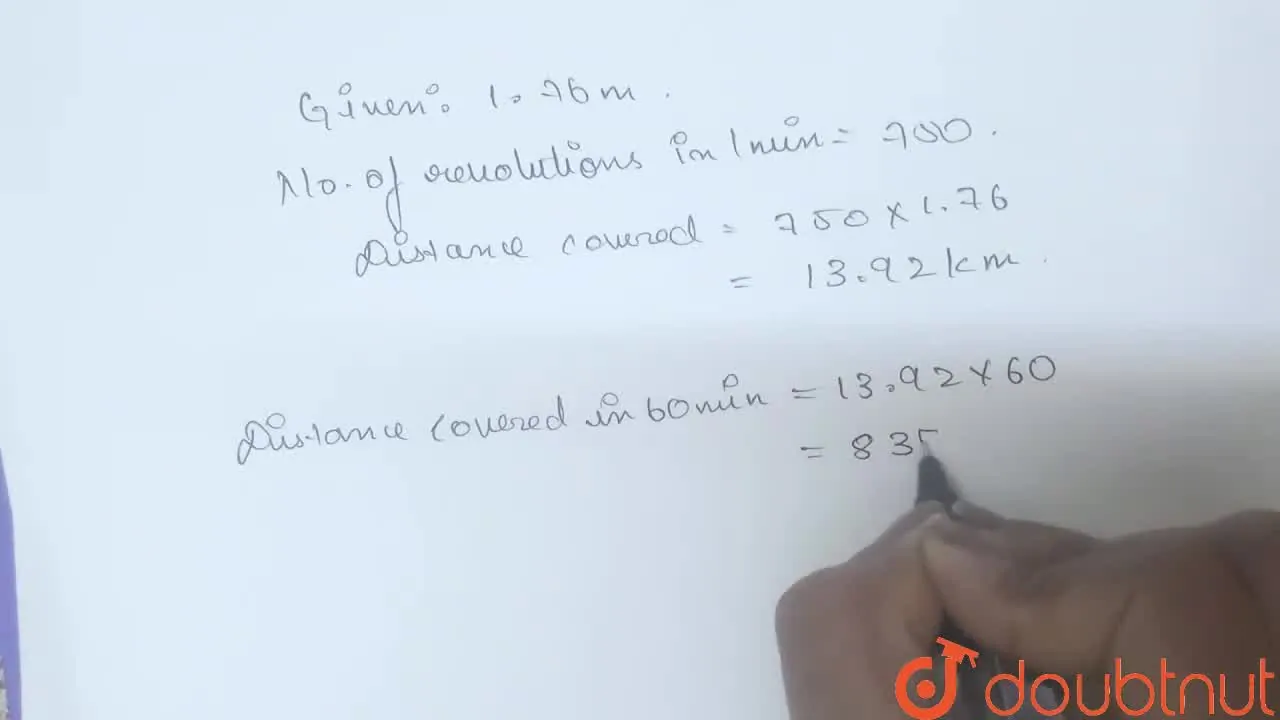 Given: 1.76m.
No. of revolutions in 1min = 750.
Distance covered = 750 × 1.76
= 13.92km.
Distance covered in 60min = 13.92 × 60
= 835
doubtnut